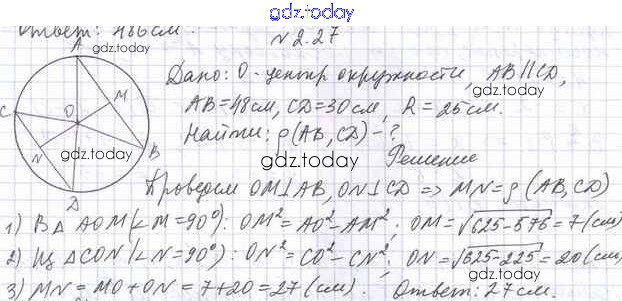 gdz.today
Ответ: 486 см.
gdz.today
№ 2.27
A
M
C
O
N
B
D
gdz.today
Дано: О - центр окружности, AB || CD,
AB = 48 см, CD = 30 см, R = 25 см.
Найти: ρ(AB, CD) - ?
gdz.today
Решение
Проведем OM ⊥ AB, ON ⊥ CD => MN = ρ (AB, CD)
1) В Δ AOM (∠M = 90°): OM² = AO² - AM²; OM = √625-576 = 7 (см)
2) Из Δ CON (∠N = 90°): ON² = CO² - CN², ON = √625-225 = 20 (см)
3) MN = MO + ON = 7 + 20 = 27 (см). Ответ: 27 см.
gdz.today